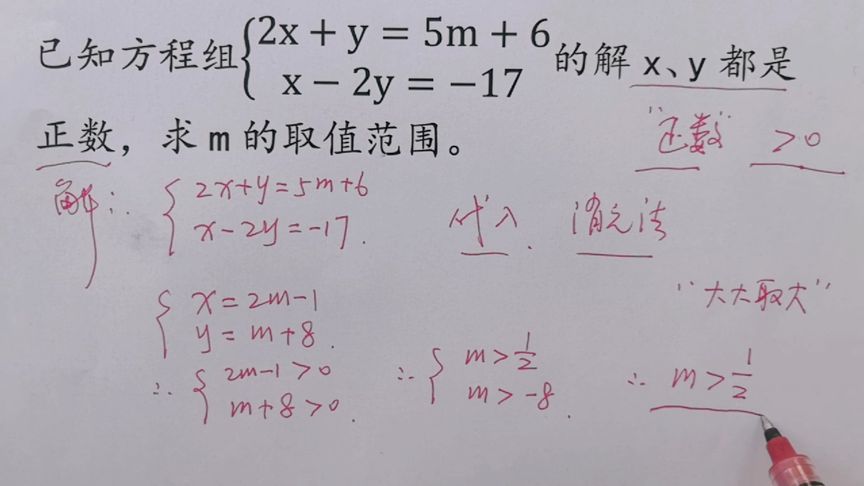 已知方程组{2x + y = 5m + 6
x − 2y = −17 的解 x、y 都是
正数，求 m 的取值范围。
"正数" >0
解：{2x+y=5m+6
x-2y=-17.
代入. 消元法
{x=2m-1
y=m+8.
"大大取大"
∴ {2m-1>0
m+8>0.
∴ {m>1/2
m>-8.
∴ m>1/2